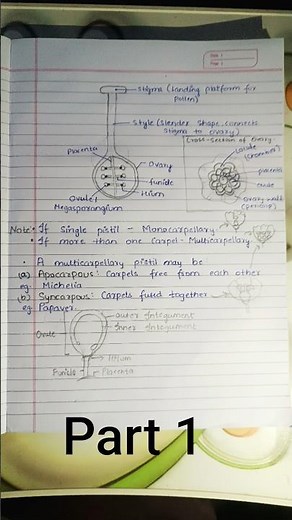 Stigma (Landing platform for Pollen)
Style (Slender Shape, connects
Stigma to ovary)
Cross-Section of Ovary
Placenta
Ovary
funicle
Hilum
Ovule/
Megasporangium
Locule
(chamber)
placenta
ovule
Ovary wall
(pericarp)
Note:- • If Single pistil - Monocarpellary
• If more than one Carpel - Multicarpellary
• A multicarpellary pistil may be
(a) Apocarpous: Carpels free from each other
eg. Michelia
(b) Syncarpous: Carpels fused together
eg. Papaver.
outer Integument
Inner Integument
Ovule
Hilum
Funicle
Placenta
Part 1